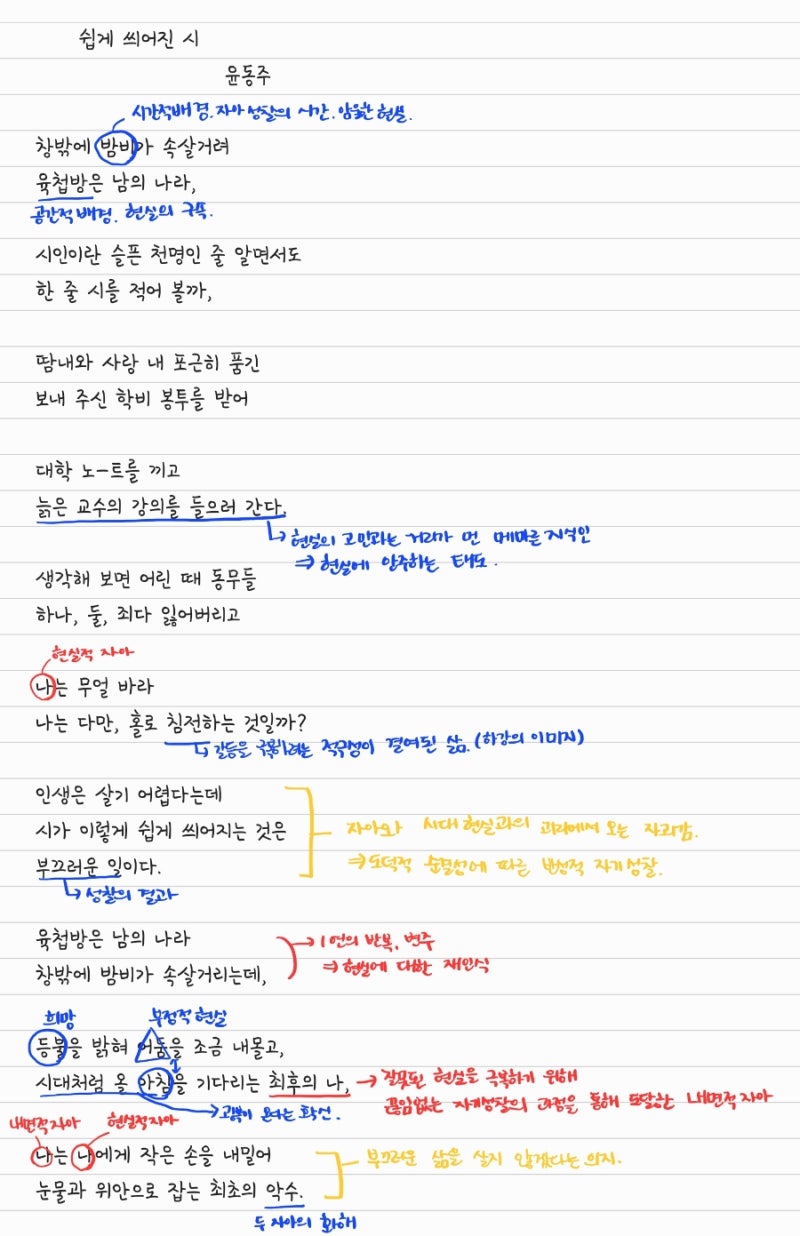 쉽게 씌어진 시
윤동주
시간적배경. 자아성찰의 시간. 암울한 현실.
창밖에 밤비가 속살거려
육첩방은 남의 나라,
공간적배경. 현실의 구속.
시인이란 슬픈 천명인 줄 알면서도
한 줄 시를 적어 볼까,
땀내와 사랑 내 포근히 품긴
보내 주신 학비 봉투를 받어
대학 노-트를 끼고
늙은 교수의 강의를 들으러 간다.
현실의 고민과는 거리가 먼 메마른 지식인
⇒ 현실에 안주하는 태도.
생각해 보면 어린 때 동무들
하나, 둘, 죄다 잃어버리고
현실적 자아
나는 무얼 바라
나는 다만, 홀로 침전하는 것일까?
갈등을 극복하려는 적극성이 결여된 삶. (하강의 이미지)
인생은 살기 어렵다는데
시가 이렇게 쉽게 씌어지는 것은
자아와 시대현실과의 괴리에서 오는 자괴감.
부끄러운 일이다.
⇒ 도덕적 순결성에 따른 반성적 자기성찰.
성찰의 결과
육첩방은 남의 나라
→ 1연의 반복, 변주
창밖에 밤비가 속살거리는데,
⇒ 현실에 대한 재인식
희망
부정적현실
등불을 밝혀 어둠을 조금 내몰고,
시대처럼 올 아침을 기다리는 최후의 나,
→ 잘못된 현실을 극복하기 위해
끊임없는 자기성찰의 과정을 통해 도달한 내면적자아
→ 광복이 온다는 확신.
내면적자아
현실적자아
나는 나에게 작은 손을 내밀어
부끄러운 삶을 살지 않겠다는 의지.
눈물과 위안으로 잡는 최초의 악수.
두 자아의 화해